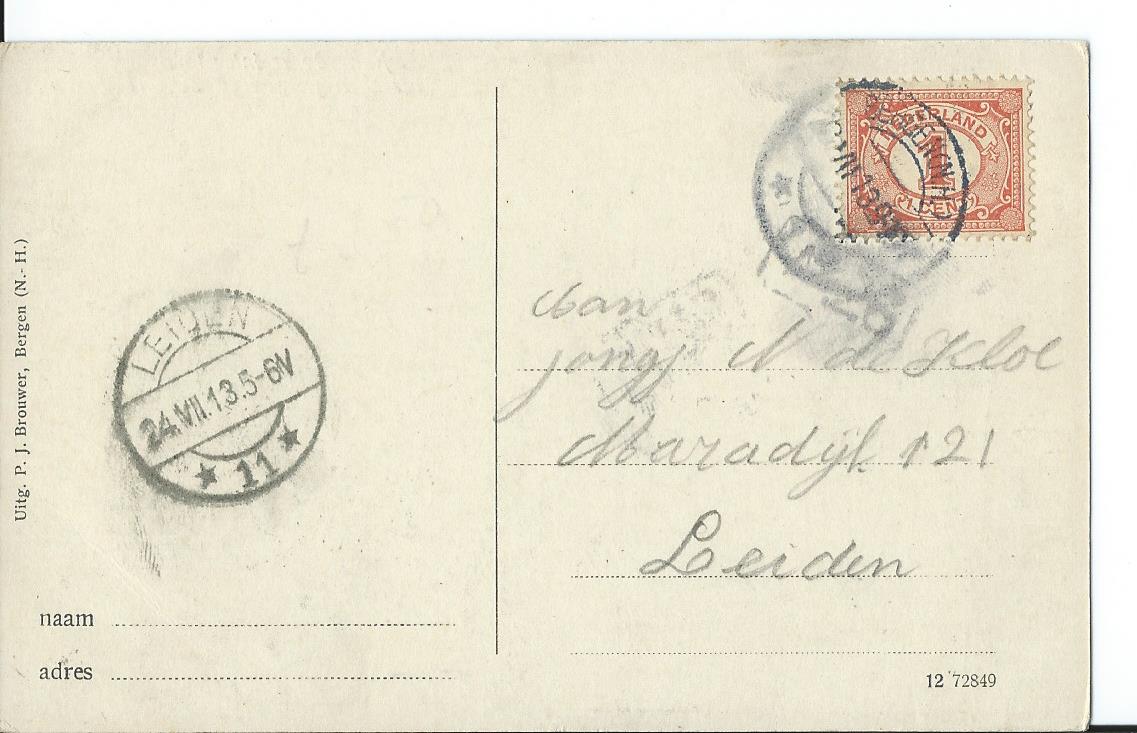 NEDERLAND
1
1 CENT
BERGEN (N.H.)
Aan
jongj N de Kloe
Maradijk 121
Leiden
LEIDEN
24.VII.13.5-6N
11
Uitg. P. J. Brouwer, Bergen (N.- H.)
naam
adres
12 72849